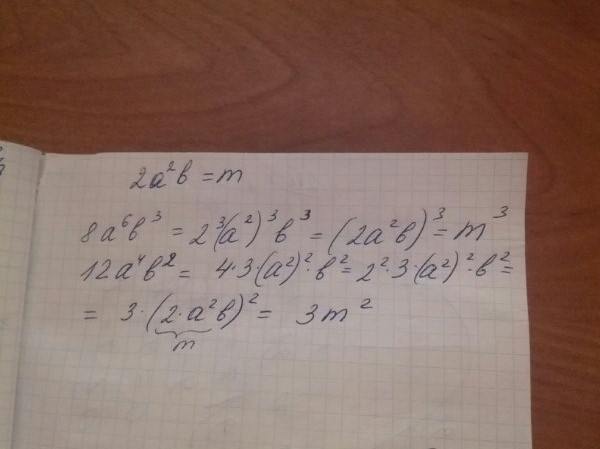 2a²b = m
8a⁶b³ = 2³(a²)³b³ = (2a²b)³ = m³
12a⁴b² = 4·3·(a²)²·b² = 2²·3·(a²)²·b² =
= 3·(2·a²b)² = 3m²
m